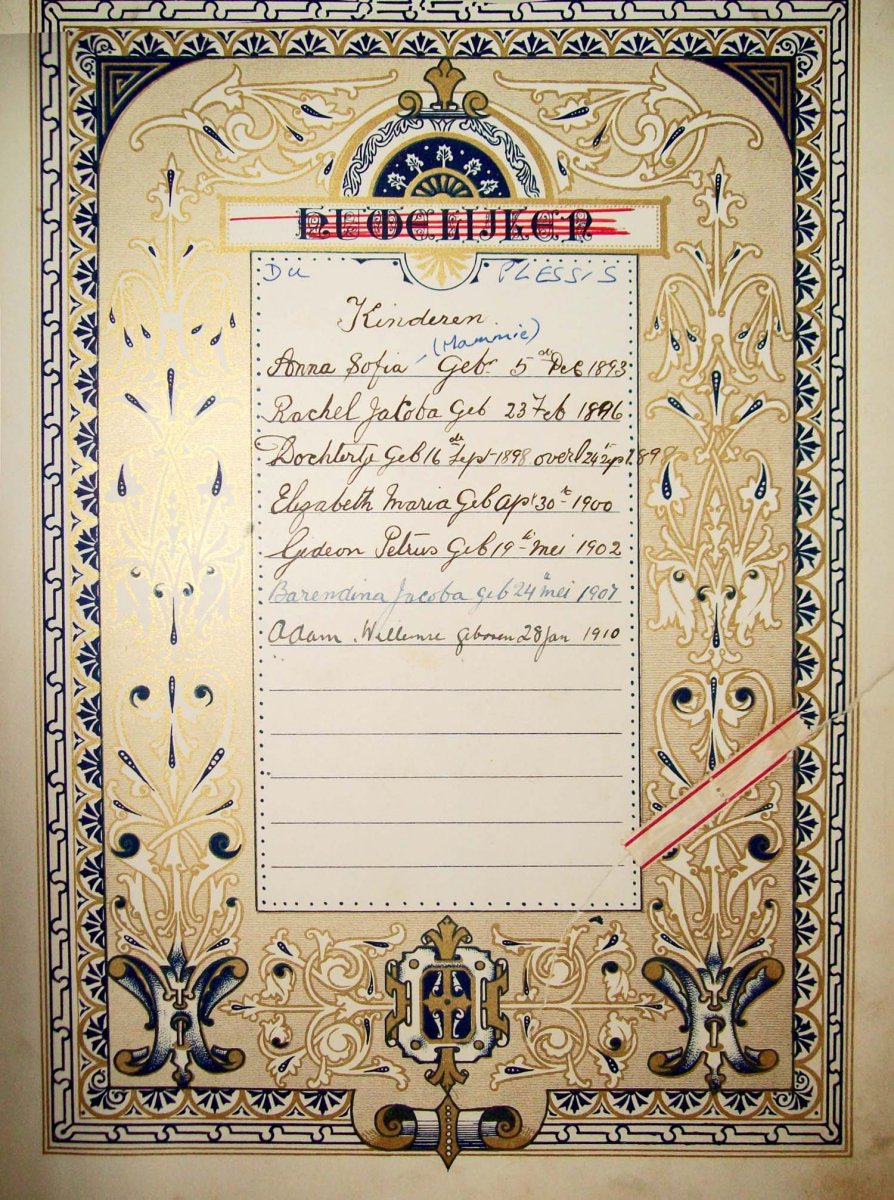 HUWELIJKEN
Du PLESSIS
Kinderen
(Mammie)
Anna Sofia Geb. 5de Dec 1893
Rachel Jacoba Geb 23 Feb 1896
Dochertje Geb 16de Sept 1898 overl 24 Sept 1898
Elizabeth Maria Geb Apl 30te 1900
Gideon Petrus Geb 19de Mei 1902
Barendina Jacoba geb 24ti mei 1907
Adam Willemse geboren 28 Jan 1910